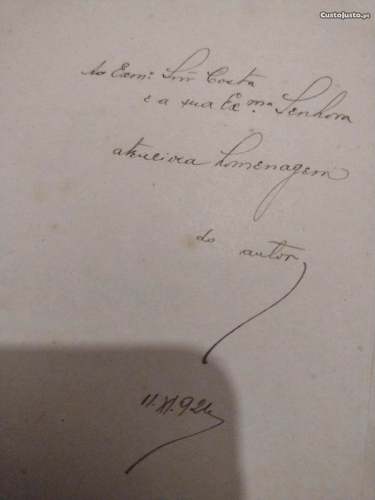 CustoJusto.pt
Ao Exmº. Snr Costa
e a sua Ex.ma Senhora
atenciosa homenagem
do autor
11.XI.924